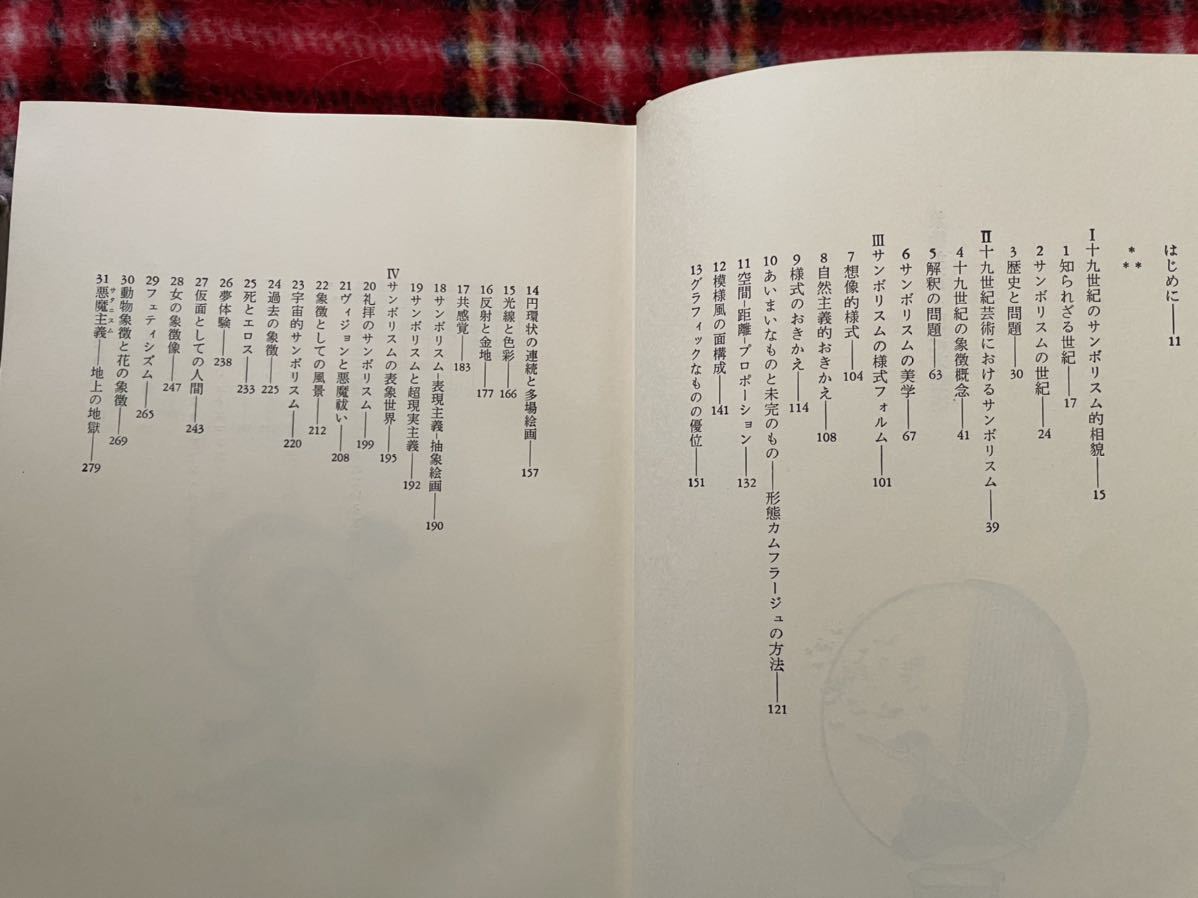 はじめに——11
*
**
I 十九世紀のサンボリスム的相貌——15
1 知られざる世紀——17
2 サンボリスムの世紀——24
3 歴史と問題——30
II 十九世紀芸術におけるサンボリスム——39
4 十九世紀の象徴概念——41
5 解釈の問題——63
6 サンボリスムの美学——67
III サンボリスムの様式フォルム——101
7 想像的様式——104
8 自然主義的おきかえ——108
9 様式のおきかえ——114
10 あいまいなものと未完のもの——形態カムフラージュの方法——121
11 空間-距離-プロポーション——132
12 模様風の面構成——141
13 グラフィックなものの優位——151
14 円環状の連続と多場絵画——157
15 光線と色彩——166
16 反射と金地——177
17 共感覚——183
18 サンボリスム-表現主義-抽象絵画——190
19 サンボリスムと超現実主義——192
IV サンボリスムの表象世界——195
20 礼拝のサンボリスム——199
21 ヴィジョンと悪魔祓い——208
22 象徴としての風景——212
23 宇宙的サンボリスム——220
24 過去の象徴——225
25 死とエロス——233
26 夢体験——238
27 仮面としての人間——243
28 女の象徴像——247
29 フェティシズム——265
30 動物象徴と花の象徴——269
31 悪魔主義サタニスム——地上の地獄——279